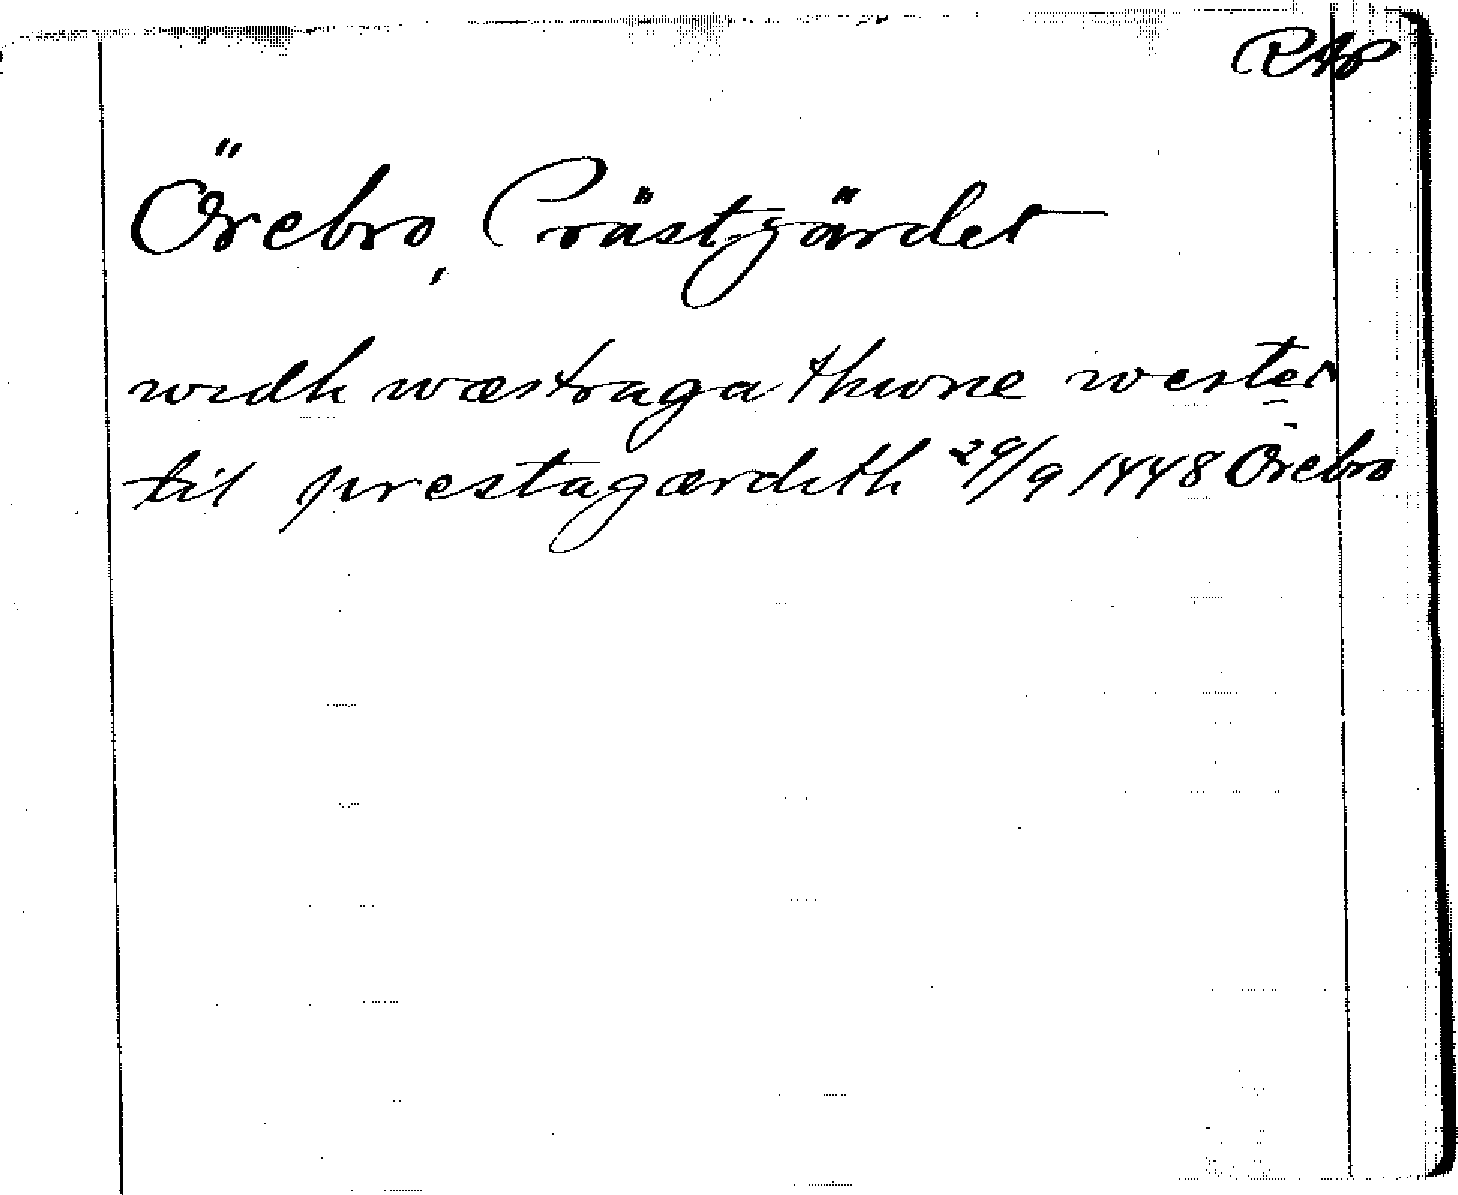 RAp
Örebro, Prästgärdet
widh wæstragathwne wester
til prestagærdith 29/9 1448 Örebro